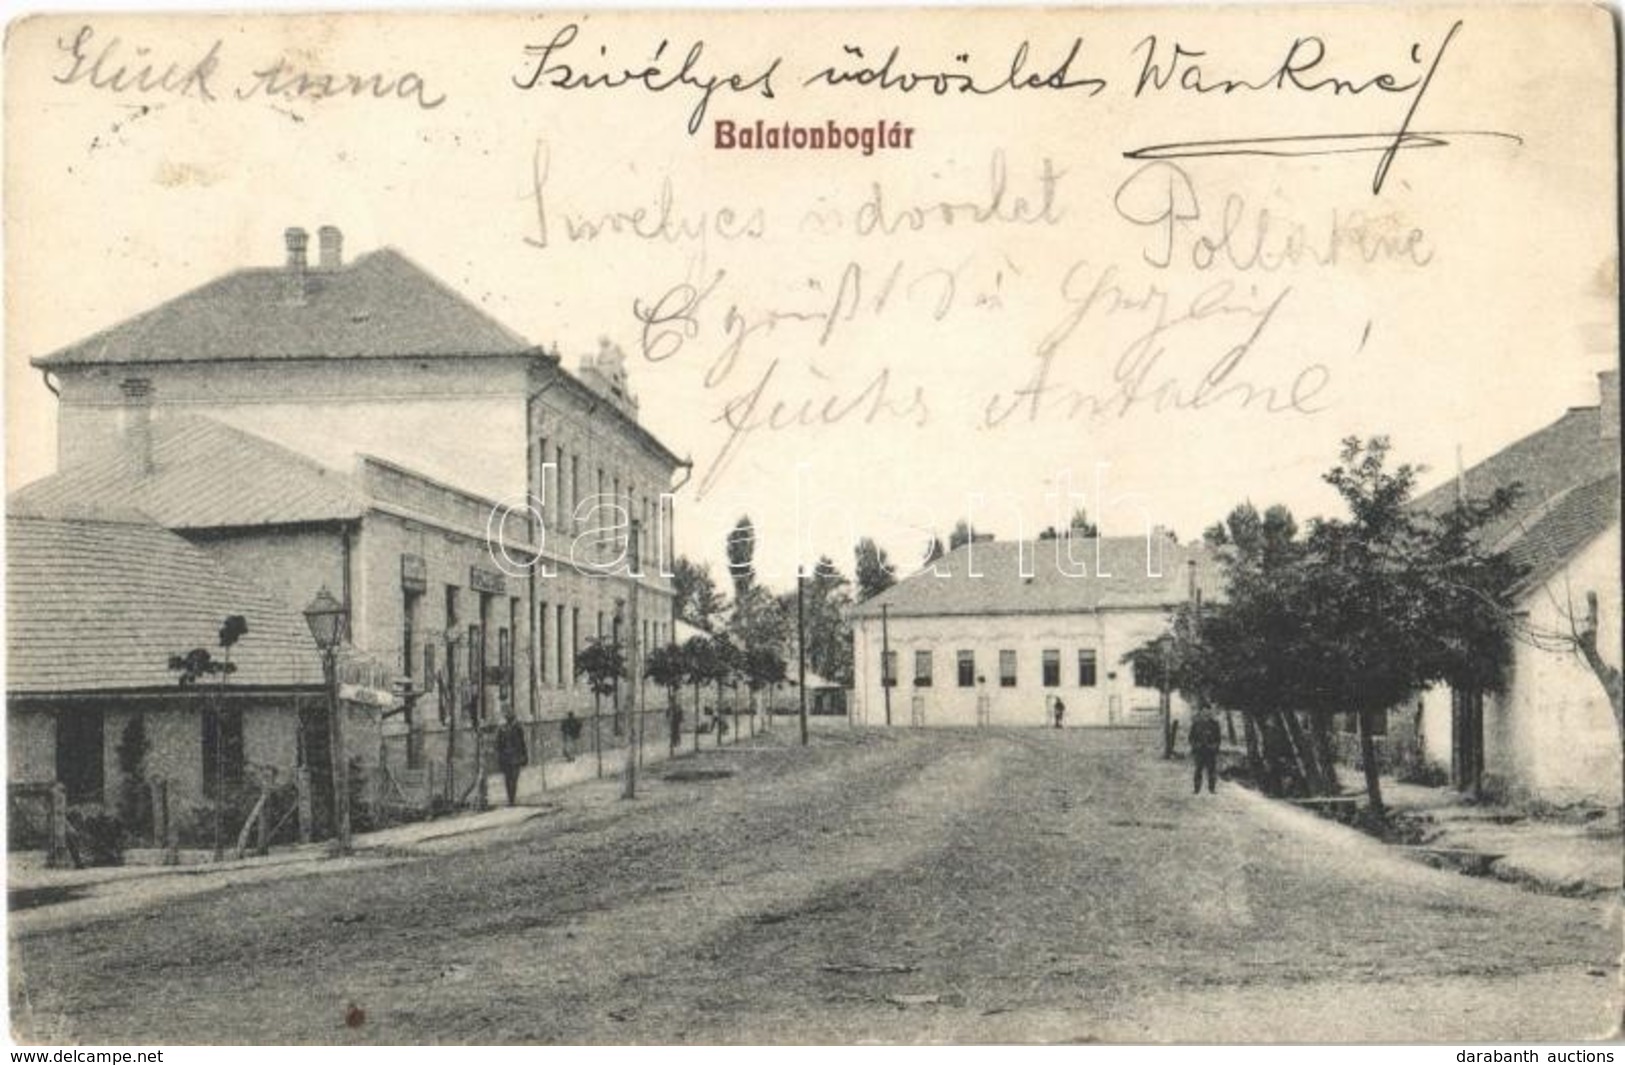 Glück Anna
Szivélyes üdvözlet Wankné
Balatonboglár
Szivélyes üdvözlet Pollákné
Es grüßt Sie
Fuchs Antalné
darabanth
www.delcampe.net
darabanth auctions